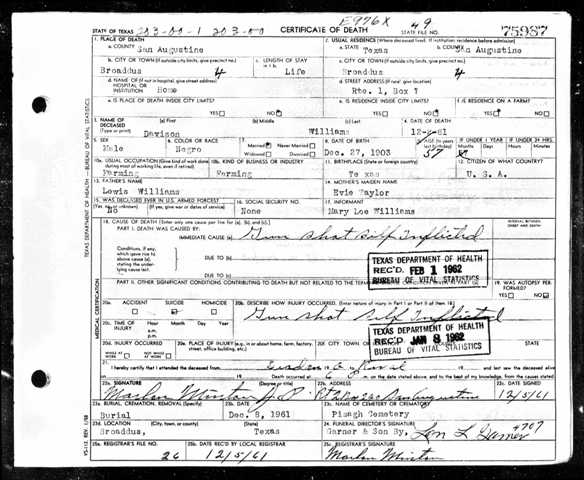 E976X 49
STATE OF TEXAS 203-00-1 203-00 CERTIFICATE OF DEATH STATE FILE NO. 75987
1. PLACE OF DEATH 2. USUAL RESIDENCE (Where deceased lived. If institution: residence before admission)
a. COUNTY San Augustine a. STATE Texas b. COUNTY San Augustine
b. CITY OR TOWN (If outside city limits, give precinct no.) c. LENGTH OF STAY c. CITY OR TOWN (If outside city limits, give precinct no.)
Broaddus 4 Life Broaddus 4
d. NAME OF (If not in hospital, give street address) d. STREET ADDRESS (If rural, give location)
HOSPITAL OR INSTITUTION Home Rte. 1, Box
e. IS PLACE OF DEATH INSIDE CITY LIMITS? e. IS RESIDENCE INSIDE CITY LIMITS? f. IS RESIDENCE ON A FARM?
YES NO YES NO YES NO
3. NAME OF DECEASED (a) First (b) Middle (c) Last 4. DATE OF DEATH
(Type or print) Davison Williams 61
5. SEX 6. COLOR OR RACE 7. Married Never Married 8. DATE OF BIRTH 9. AGE IF UNDER 1 YEAR IF UNDER 24 HRS.
Male Negro Widowed Divorced Dec. 27, 1903 57
10a. USUAL OCCUPATION (Give kind of work done during most of working life, even if retired) 10b. KIND OF BUSINESS OR INDUSTRY 11. BIRTHPLACE (State or foreign country) 12. CITIZEN OF WHAT COUNTRY?
Farming Farming Texas U. S. A.
13. FATHER'S NAME 14. MOTHER'S MAIDEN NAME
Lewis Williams Evie Taylor
15. WAS DECEASED EVER IN U.S. ARMED FORCES? 16. SOCIAL SECURITY NO. 17. INFORMANT
(If yes, give war or dates of service)
No None Mary Lee Williams
18. CAUSE OF DEATH (Enter only one cause per line for (a), (b), and (c).) INTERVAL BETWEEN ONSET AND DEATH
PART I. DEATH WAS CAUSED BY:
IMMEDIATE CAUSE (a) Gun shot Self Inflicted
Conditions, if any, which gave rise to above cause (a), stating the underlying cause last.
DUE TO (b)
DUE TO (c)
TEXAS DEPARTMENT OF HEALTH
REC'D. FEB 1 1962
BUREAU OF VITAL STATISTICS
PART II. OTHER SIGNIFICANT CONDITIONS CONTRIBUTING TO DEATH BUT NOT RELATED TO THE 19. WAS AUTOPSY PERFORMED?
YES NO
20a. ACCIDENT SUICIDE HOMICIDE 20b. DESCRIBE HOW INJURY OCCURRED. (Enter nature of injury in Part I or Part II of item 18)
Gun shot Self Inflicted
20c. TIME OF INJURY Hour Month Day Year
a.m.
p.m.
TEXAS DEPARTMENT OF HEALTH
REC'D. JAN 8 1962
BUREAU OF VITAL STATISTICS
20d. INJURY OCCURRED 20e. PLACE OF INJURY (e.g., in or about home, farm, factory, street, office building, etc.) 20f. CITY, TOWN
WHILE AT WORK NOT WHILE AT WORK
21. I hereby certify that I attended the deceased from and last saw the deceased alive
on Death occurred at m. on the date stated above, and to the best of my knowledge, from the causes stated.
22a. SIGNATURE (Degree or title) 22b. ADDRESS 22c. DATE SIGNED
Marlon Minton J.P. San Augustine 12/5/61
23a. BURIAL, CREMATION, REMOVAL (Specify) 23b. DATE 23c. NAME OF CEMETERY OR CREMATORY
Burial Dec. 8, 1961 Pisagh Cemetery
23d. LOCATION (City, town, or county) (State) 24. FUNERAL DIRECTOR'S SIGNATURE
Broaddus, Texas Garner & Son By, Lon L Garner #707
25a. REGISTRAR'S FILE NO. 25b. DATE REC'D BY LOCAL REGISTRAR 25c. REGISTRAR'S SIGNATURE
26 12/5/61 Marlon Minton
TEXAS DEPARTMENT OF HEALTH — BUREAU OF VITAL STATISTICS
MEDICAL CERTIFICATION